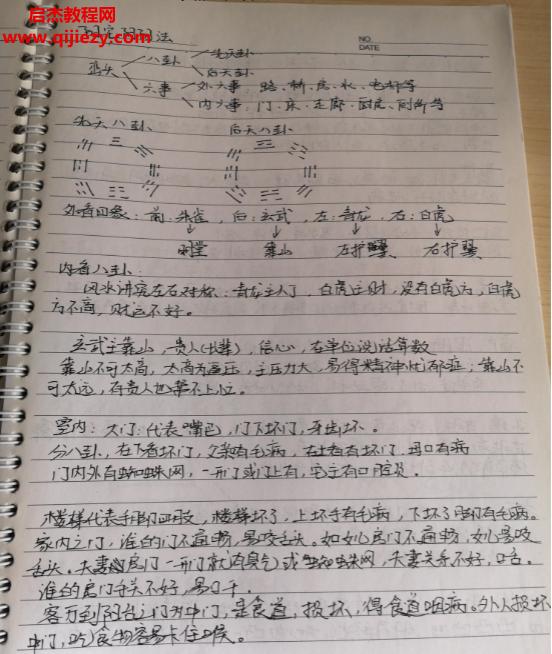 启杰教网
www.qijiezy.com
阳宅 法
NO.
DATE
峦头 八卦 先天卦
后天卦
六事 外六事：路、桥、房、水、电杆等
内六事：门、床、走廊、厨房、厕所等
先天八卦 后天八卦
外看四象：前：朱雀，后：玄武，左：青龙，右：白虎
明堂 靠山 左护 右护
内看八卦：
风水讲究左右对称，青龙主人丁，白虎主财，没有白虎方，白虎
方不高，财运不好。
玄武主靠山，贵人（长辈），信心，在单位说话算数
靠山不可太高，太高为逼压，主压力大，易得精神忧郁症；靠山不
可太远，有贵人也帮不上忙。
室内：大门：代表嘴巴，门下坏门，牙齿坏。
分八卦，在下者坏门，父亲有毛病，在 者有坏门，母口有病
门内外有蜘蛛网，一开门或门上有，宅主有口腔炎。
楼梯代表手脚四肢，楼梯坏了，上坏手有毛病，下坏了脚有毛病。
家内之门，谁的门不通畅，易咬舌头。如女儿房门不通畅，女儿易咬
舌头。夫妻房门一开门就有臭气或蜘蛛网，夫妻关系不好，口舌。
谁的房门开关不好，易口干。
客厅到阳台之门为中门，是食道，损坏，得食道咽病。外人损坏
中门，吃食物容易卡住喉。